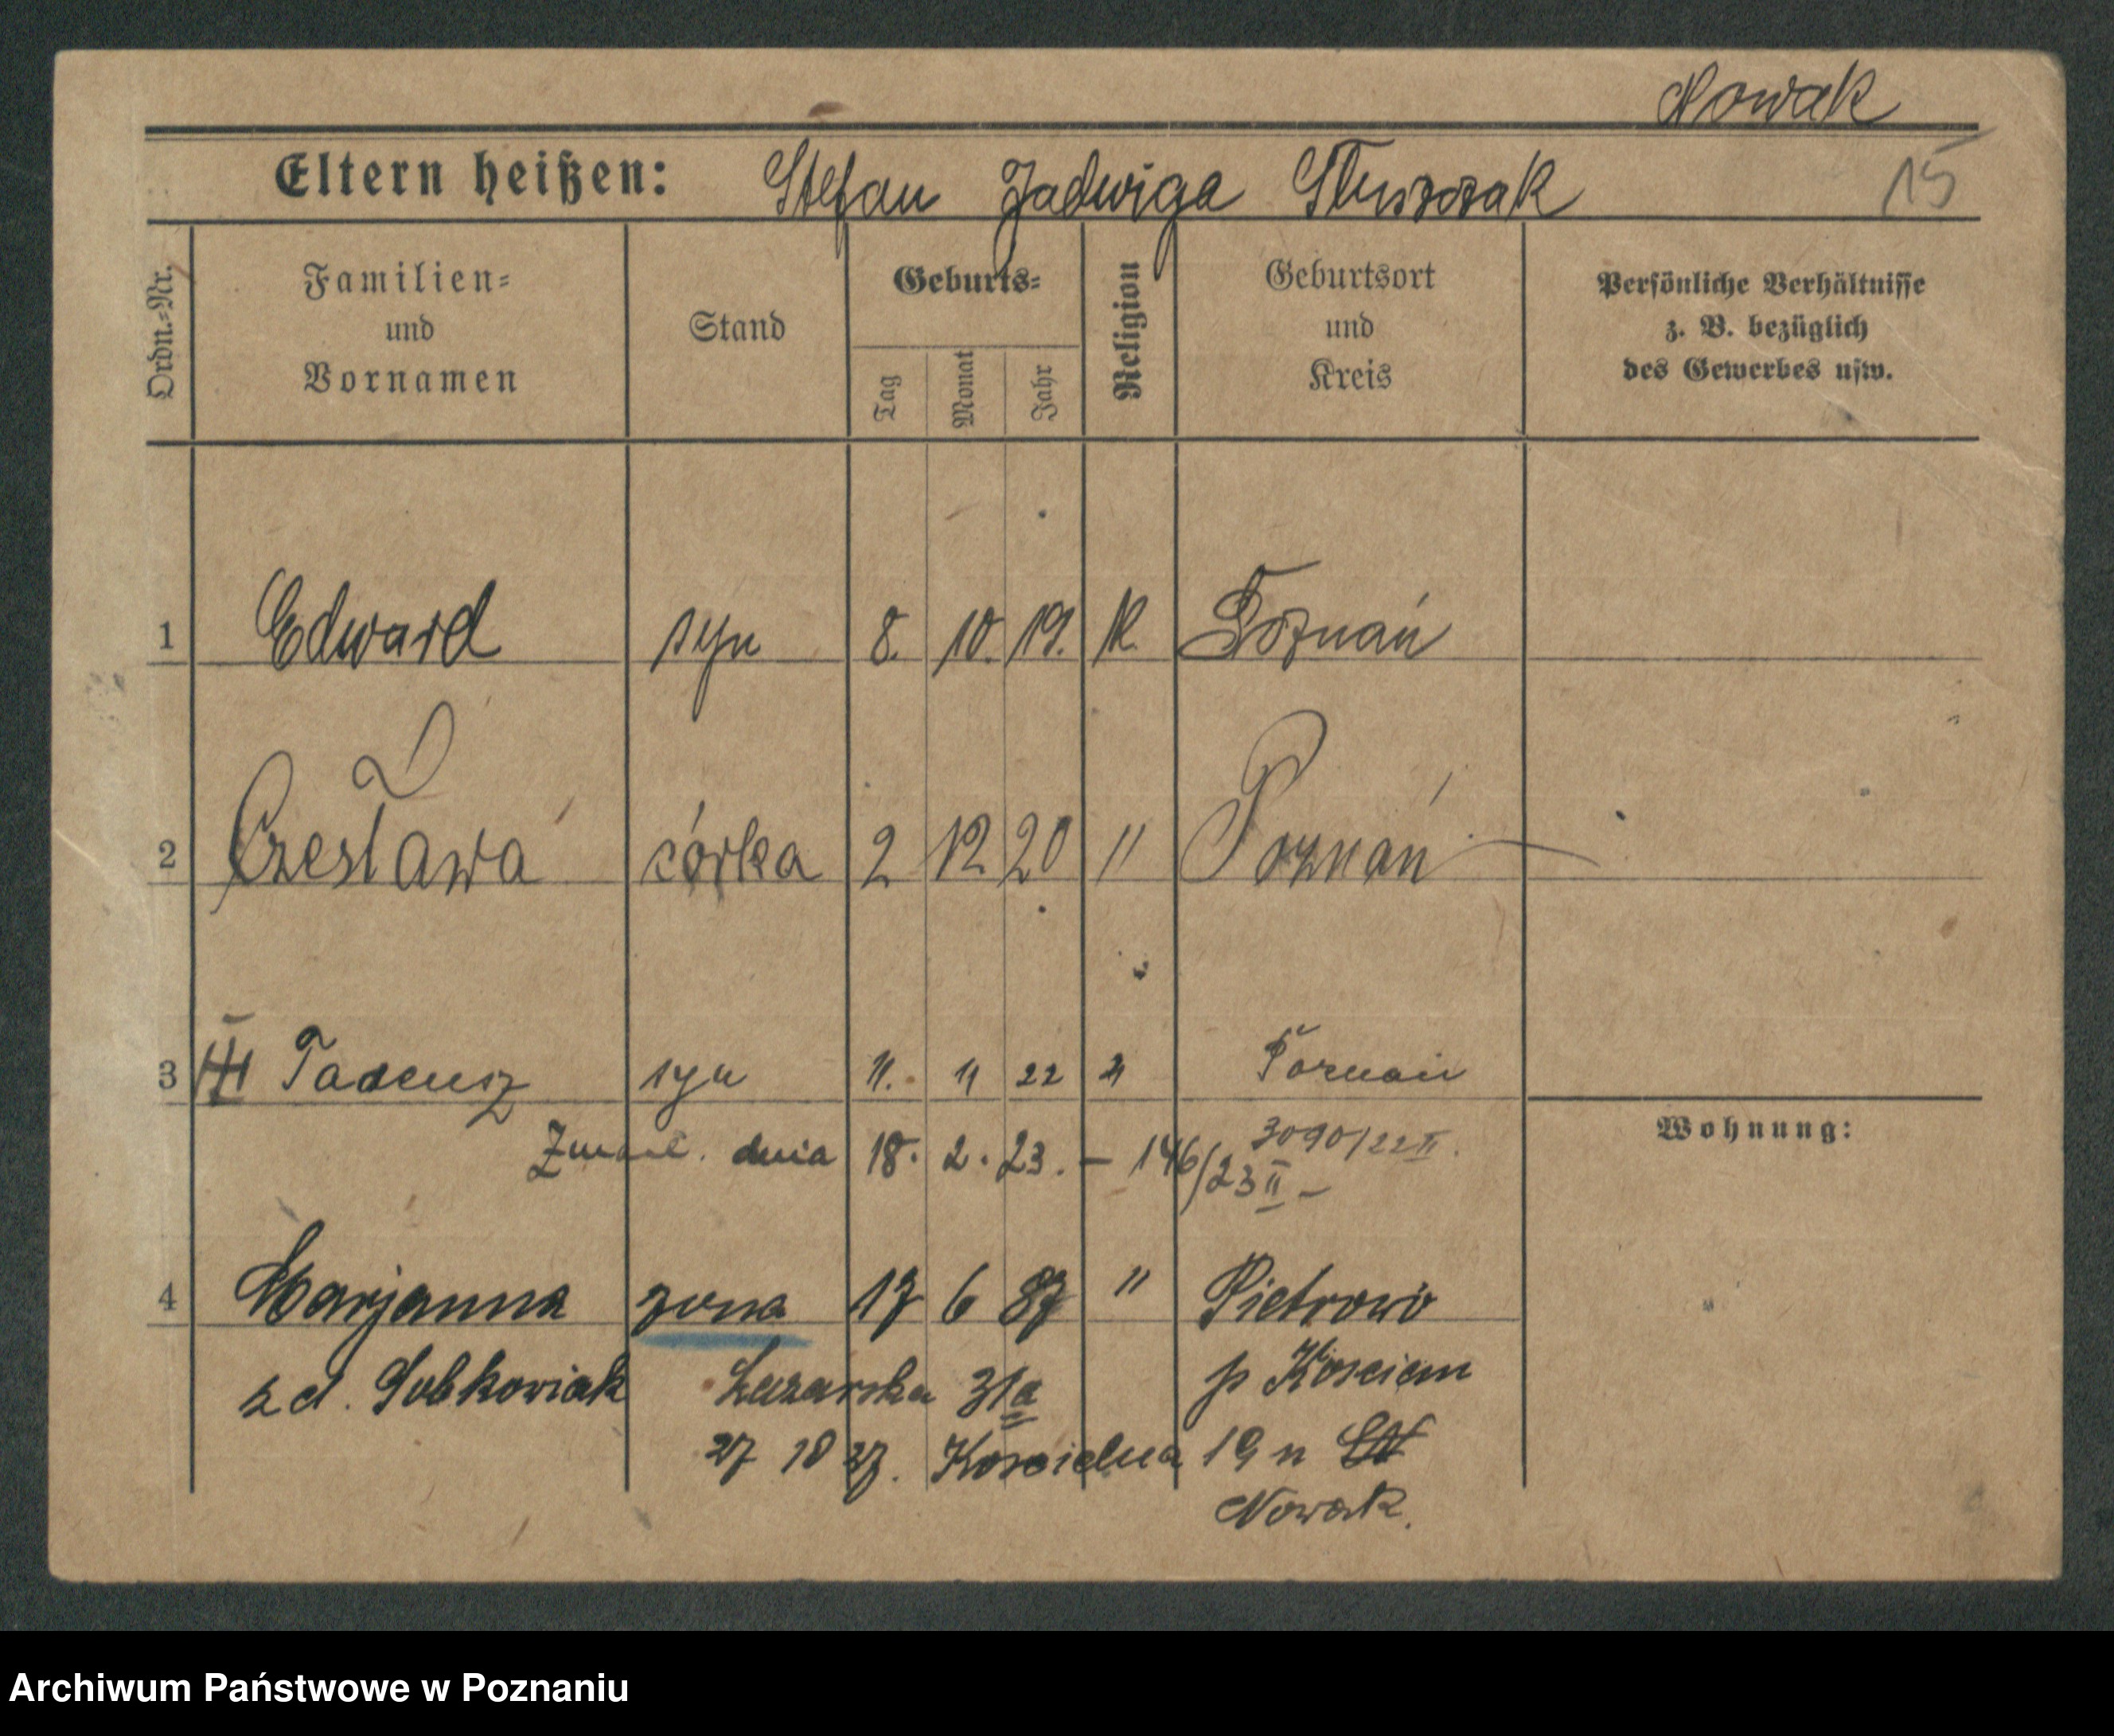 Nowak
Eltern heißen: Stefan Jadwiga Stuszak 15
Ordn.-Nr. Familien- und Vornamen Stand Geburts- Tag Monat Jahr Religion Geburtsort und Kreis Persönliche Verhältnisse z. B. bezüglich des Gewerbes usw.
1 Edward syn 8. 10. 19. K. Poznań
2 Czesława córka 2 12 20 " Poznań
3 Tadeusz syn 11. 11 22 " Poznań
Wohnung:
Zmarł. dnia 18. 2. 23. – 146/23 II – 3090/22 II.
4 Marjanna zona 17 6 87 " Pietrowo
z d. Sobkowiak Lazarska 31a p Koscian
27 10 27. Koscielna 19 n
Nowak.
Archiwum Państwowe w Poznaniu